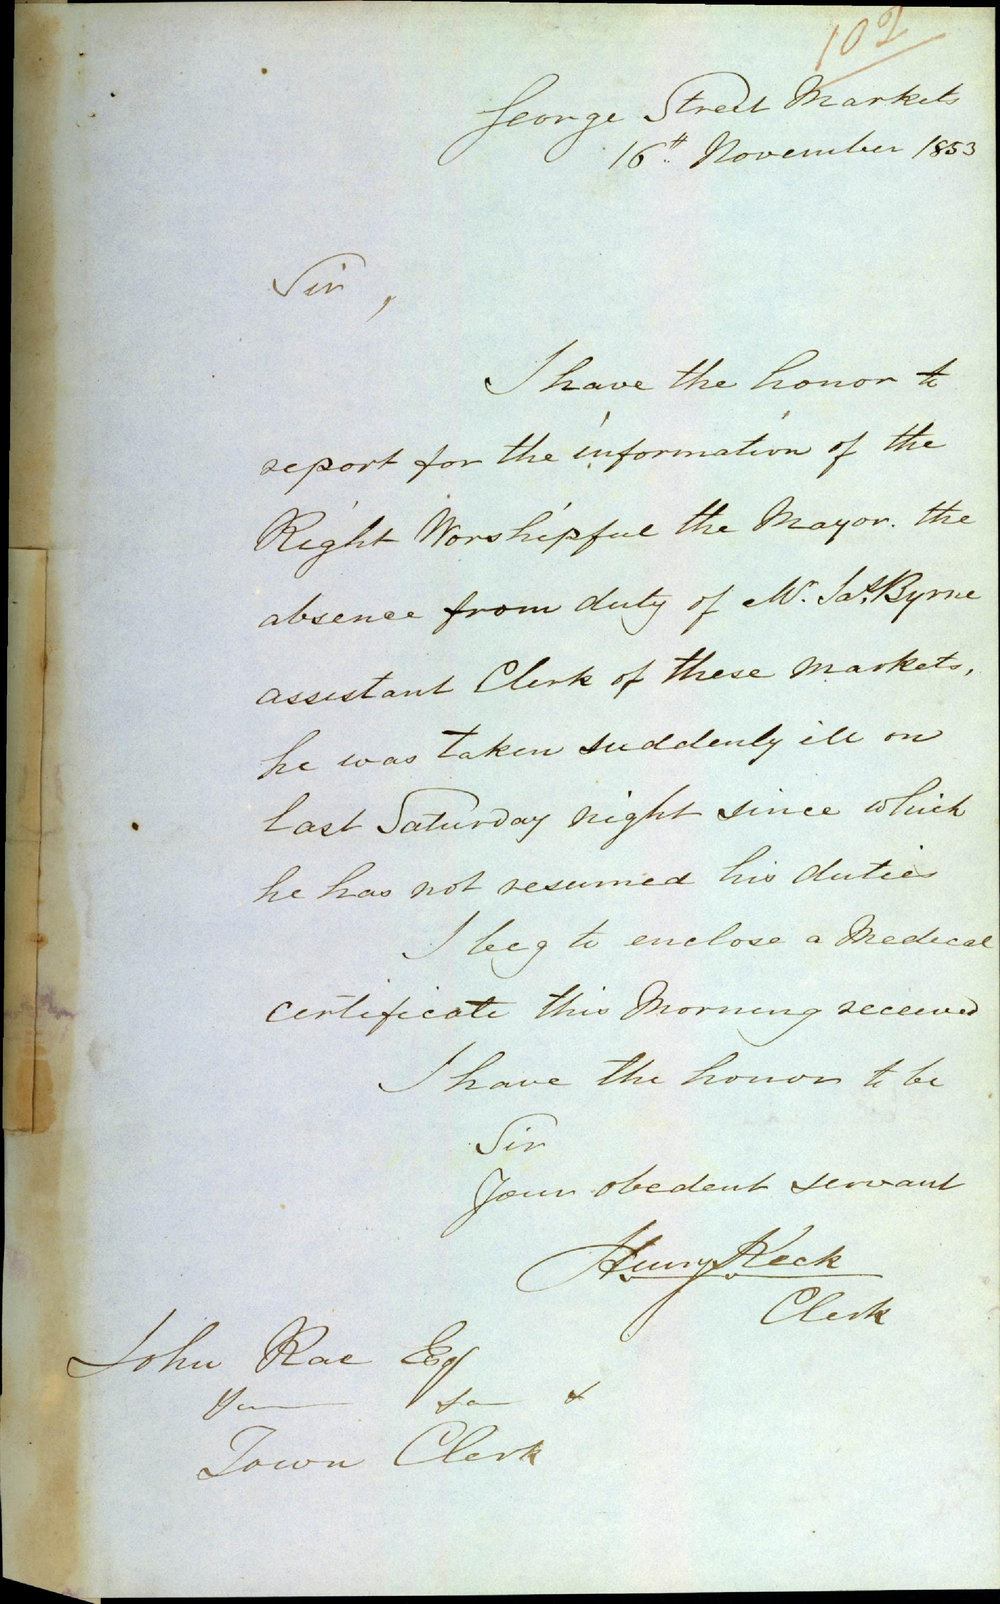 102
George Street Markets
16th November 1853
Sir,
I have the honor to
report for the information of the
Right Worshipful the Mayor. the
absence from duty of Mr. Jas. Byrne
assistant Clerk of these Markets,
he was taken suddenly ill on
last Saturday night since which
he has not resumed his duties
I beg to enclose a Medical
certificate this Morning received
I have the honor to be
Sir
Your obedent servant
Henry Keck
Clerk
John Rae Esq
Town Clerk